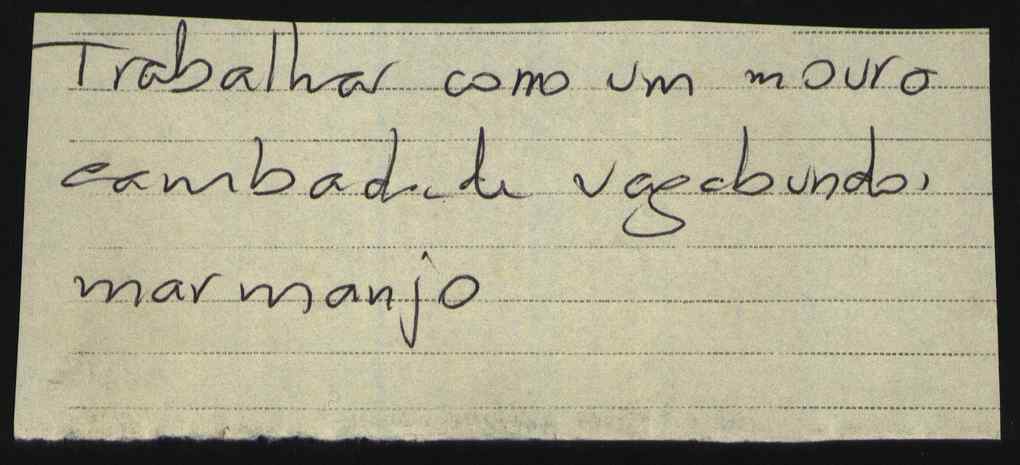 Trabalhar como um mouro
cambada de vagabundos
marmanjo